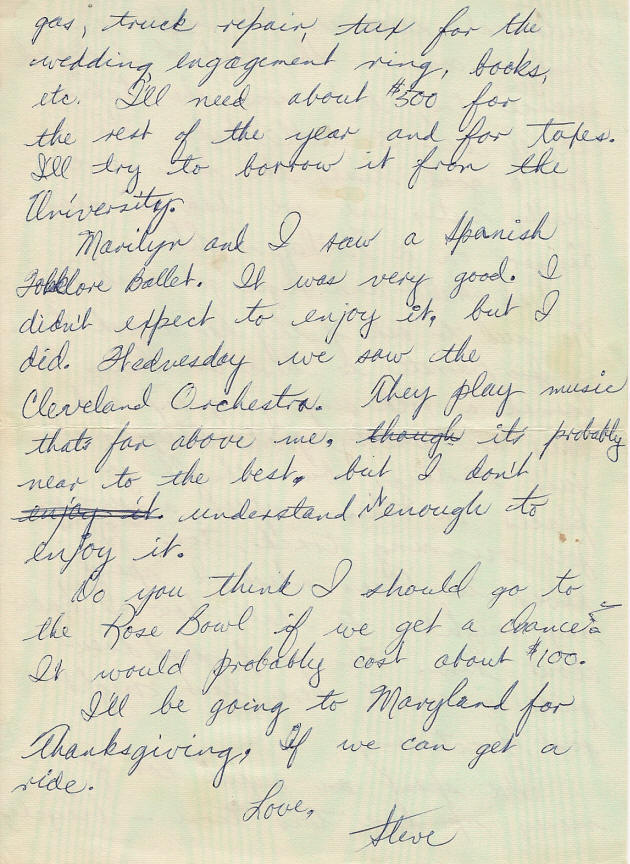 gas, truck repair, tux for the
wedding, engagement ring, books,
etc. I'll need about $500 for
the rest of the year and for tapes.
I'll try to borrow it from the
University.
Marilyn and I saw a Spanish
Folklore Ballet. It was very good. I
didn't expect to enjoy it, but I
did. Wednesday we saw the
Cleveland Orchestra. They play music
thats far above me, though its probably
near to the best, but I don't
enjoy it. understand it enough to
enjoy it.
Do you think I should go to
the Rose Bowl if we get a chance?
It would probably cost about $100.
I'll be going to Maryland for
Thanksgiving, If we can get a
ride.
Love,
Steve